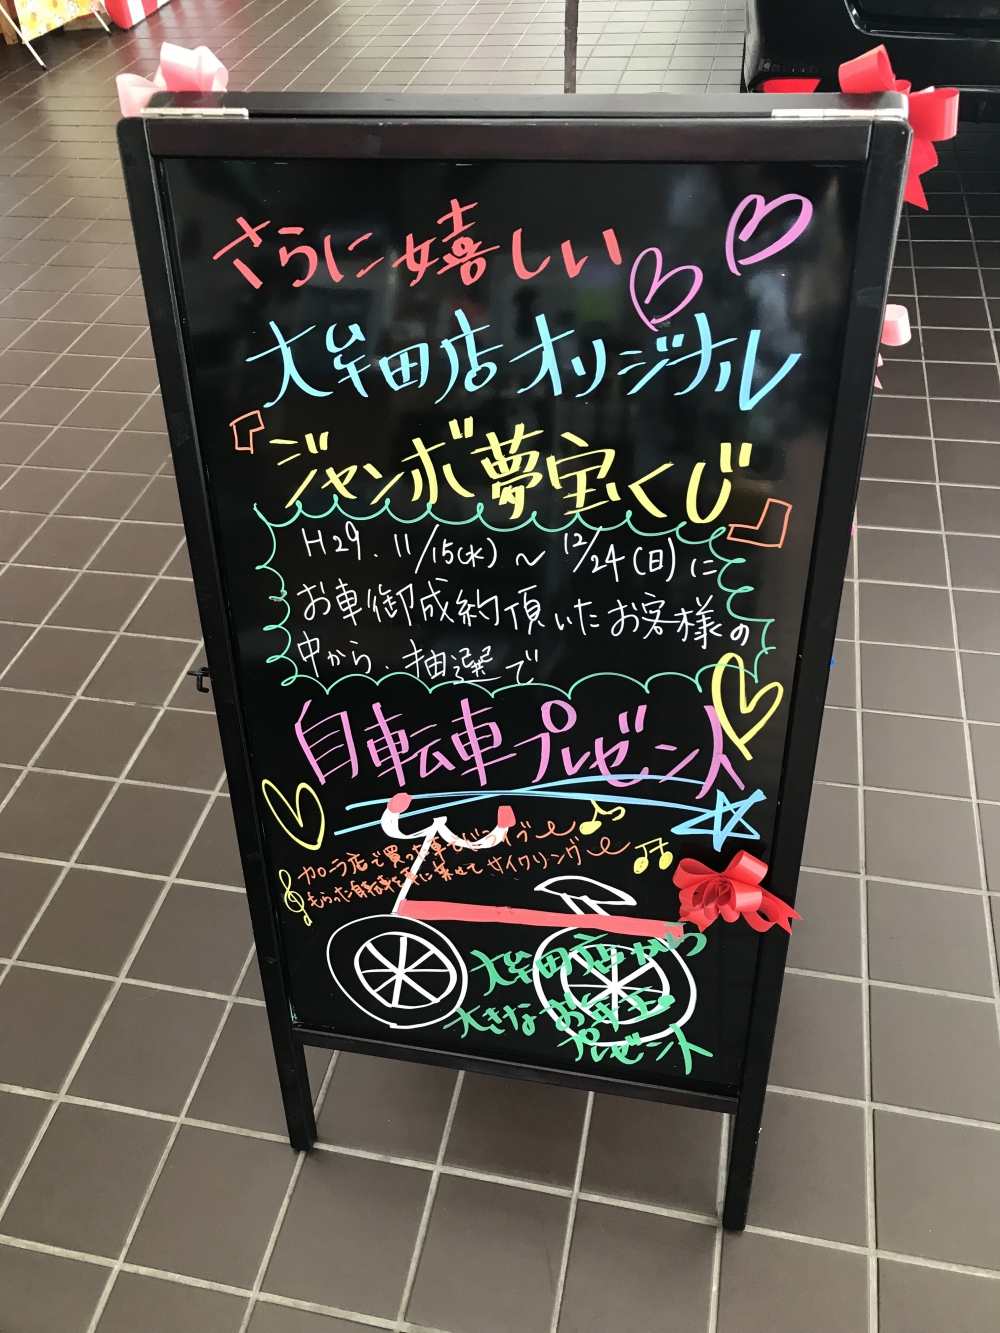 さらに嬉しい
大牟田店オリジナル
『ジャンボ夢宝くじ』
H29.11/15(水)～12/24(日)に
お車御成約頂いたお客様の
中から、抽選で
自転車プレゼント
カローラ店で買った車でドライブ～
もらった自転車を車に乗せてサイクリング～
大牟田店から
大きなお年玉
プレゼント